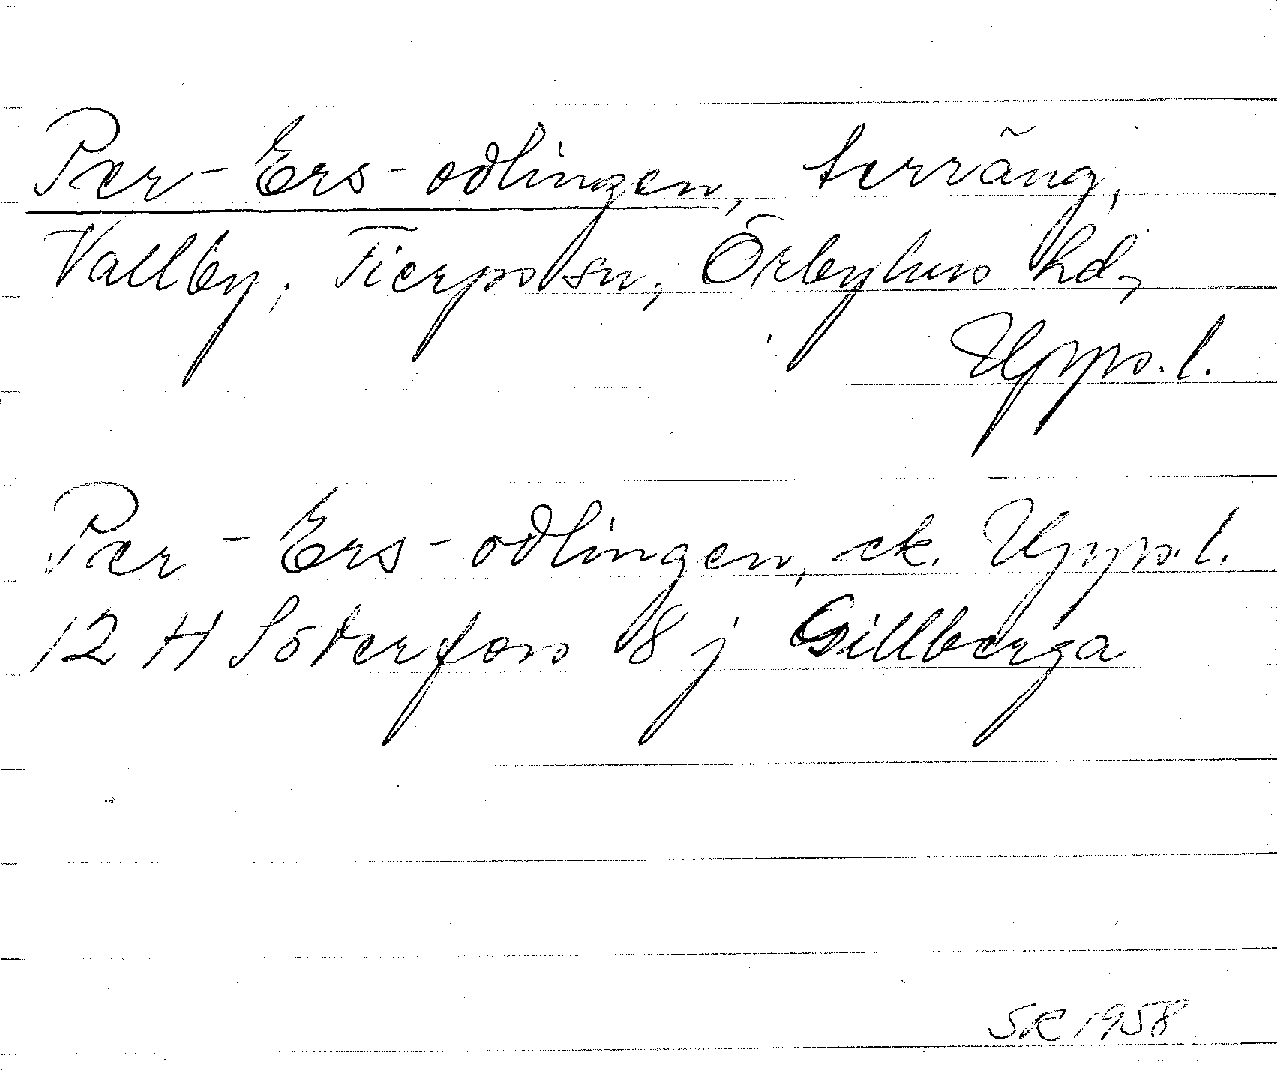 Per-Ers-odlingen, terräng,
Vallby, Tierps sn, Örbyhus hd,
Upps.l.
Per-Ers-odlingen, ek. Upps.l.
12 H Söderfors 8 j Gillberga
SR 1958